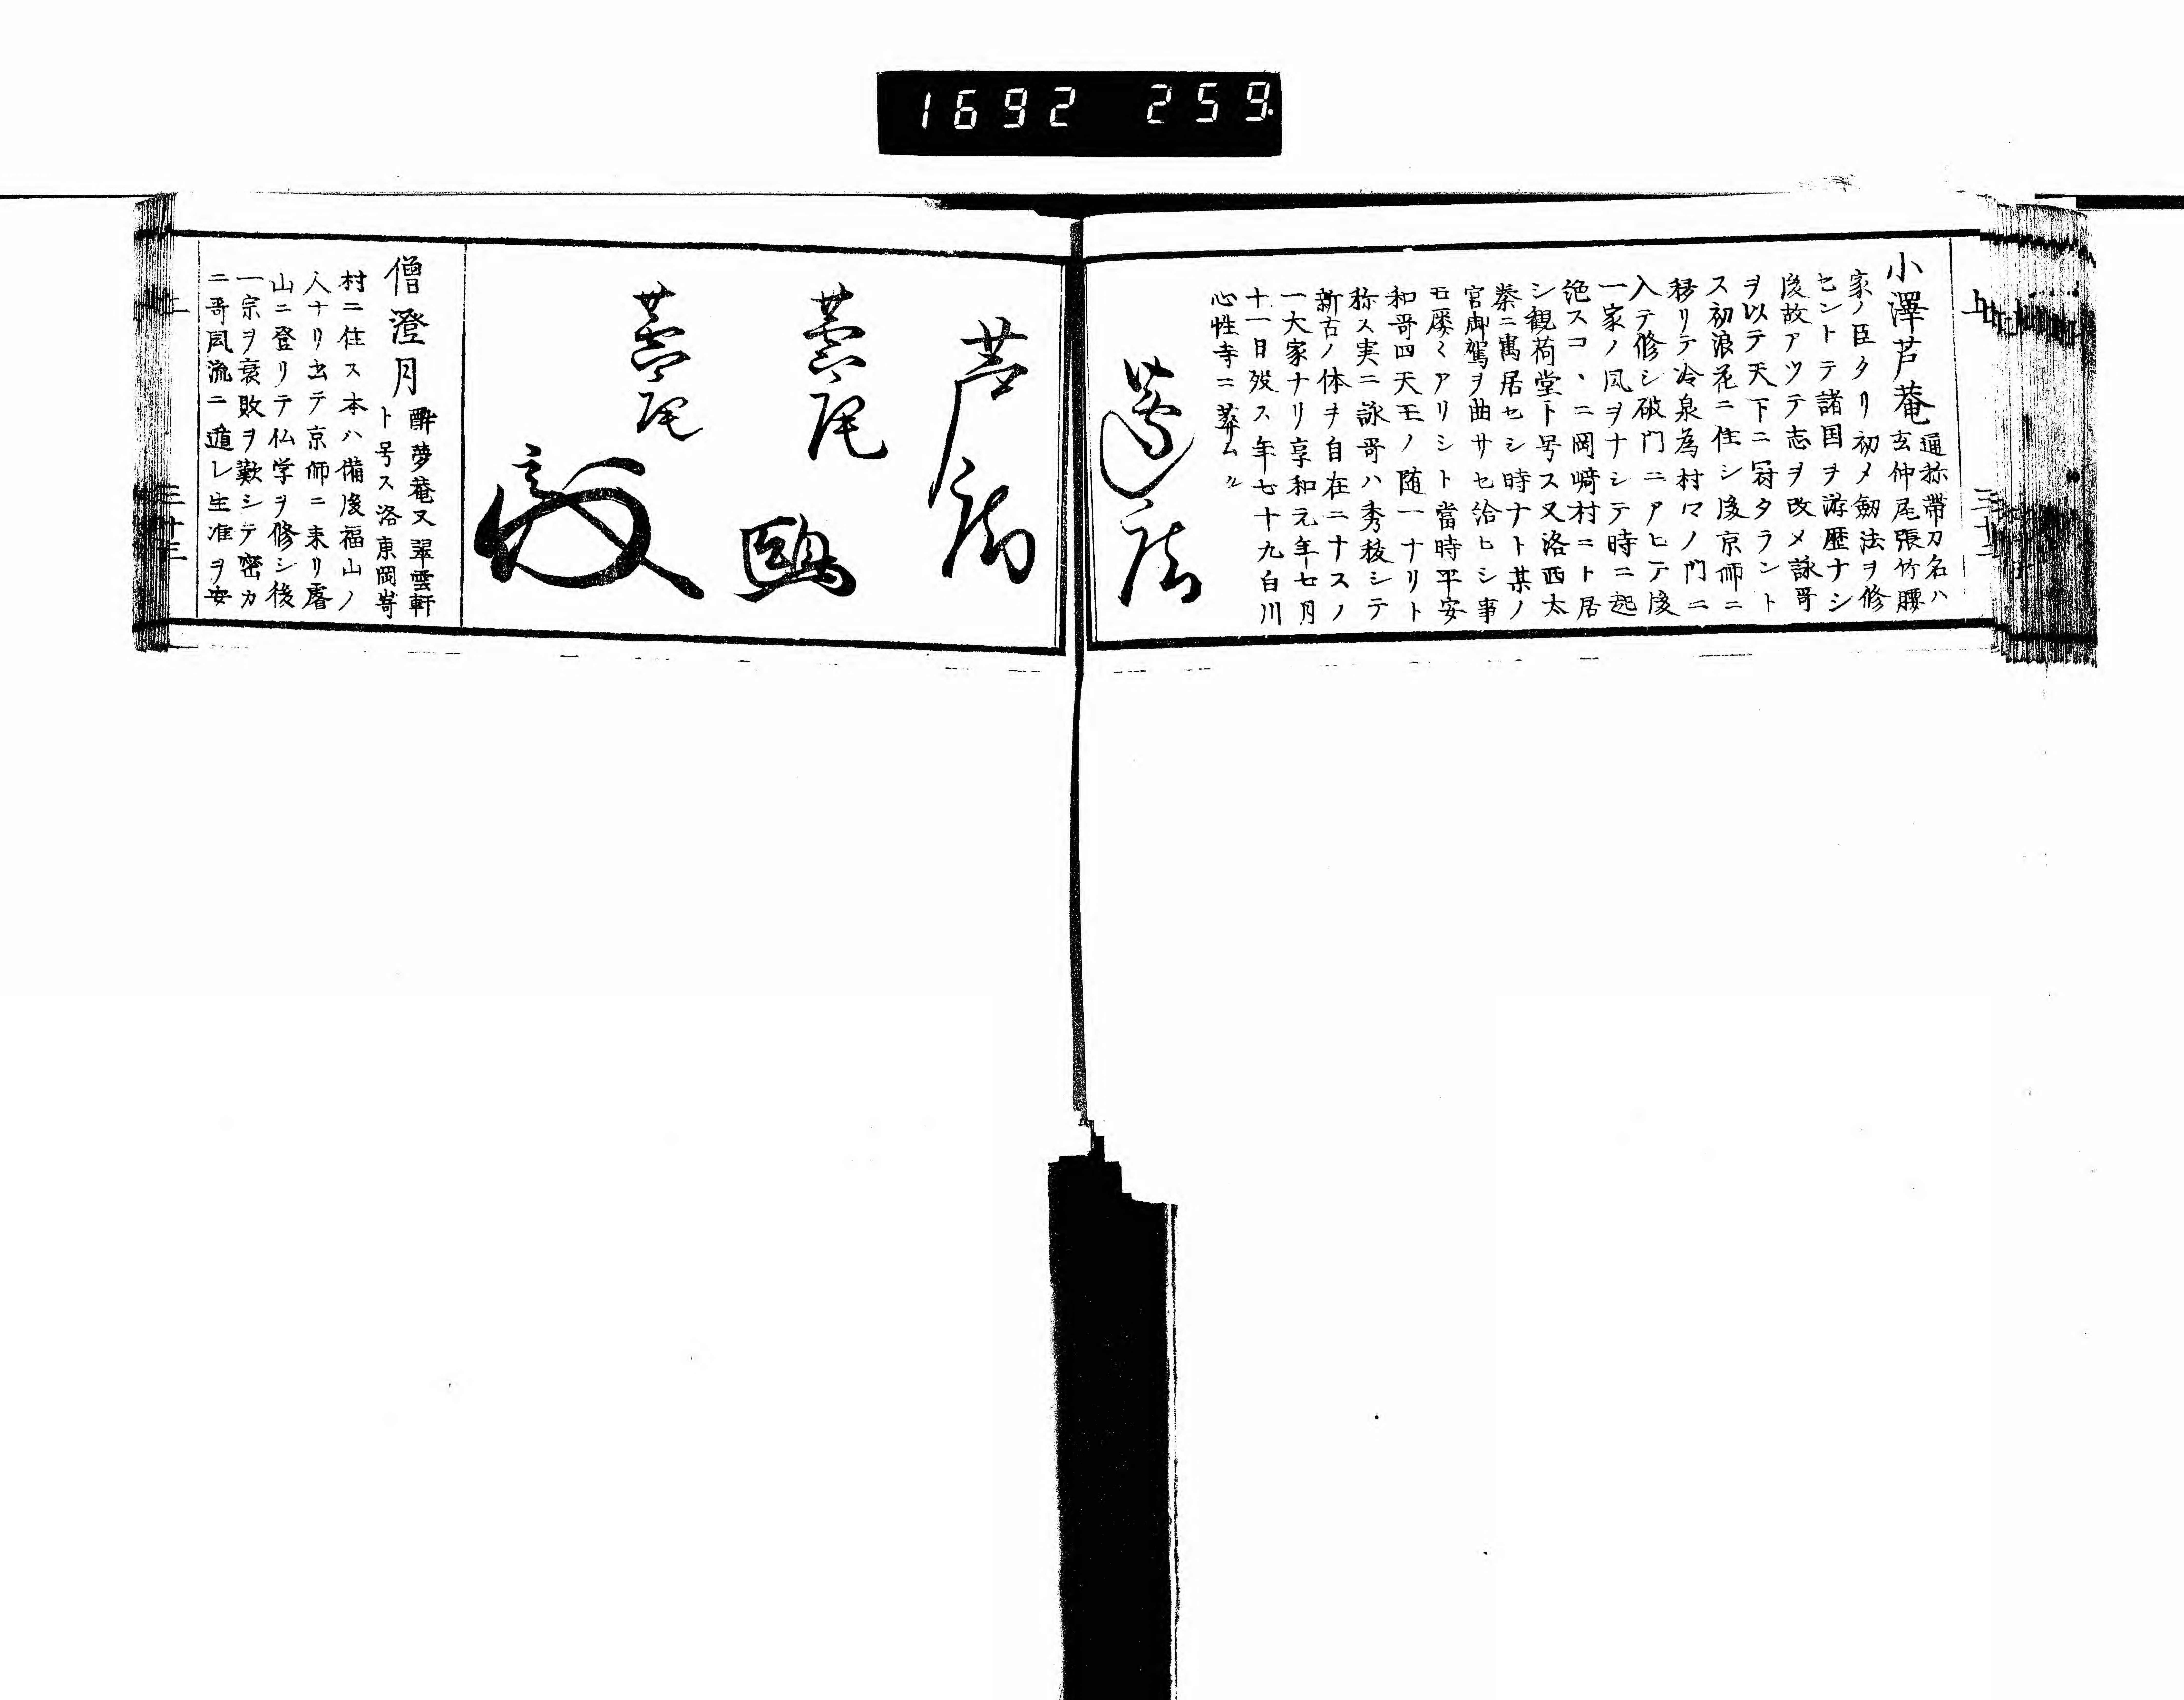 1692 259.
上
三十二
小澤芦菴
通称帯刀名ハ
玄仲尾張竹腰
家ノ臣タリ初メ剱法ヲ修
セントテ諸国ヲ游歴ナシ
後故アツテ志ヲ改メ詠哥
ヲ以テ天下ニ冠タラント
ス初浪花ニ住シ後京师ニ
移リテ冷泉為村マノ門ニ
入テ修シ破門ニアヒテ後
一家ノ风ヲナシテ時ニ起
絶スコヽニ岡﨑村ニト居
シ観荷堂ト号ス又洛西太
秦ニ寓居セシ時ナト某ノ
官御駕ヲ曲サセ給ヒシ事
モ屡々アリシト當時平安
和哥四天王ノ随一ナリト
称ス実ニ詠哥ハ秀抜シテ
新古ノ体ヲ自在ニナスノ
一大家ナリ享和元年七月
十一日歿ス年七十九白川
心性寺ニ葬ムル
僧澄月
酔夢菴又翠雲軒
ト号ス洛東岡㟢
村ニ住ス本ハ備後福山ノ
人ナリ出テ京师ニ来リ睿
山ニ登リテ仏学ヲ修シ後
一宗ヲ衰敗ヲ歎シテ密カ
ニ哥风流ニ遁レ生涯ヲ安
上
三十三